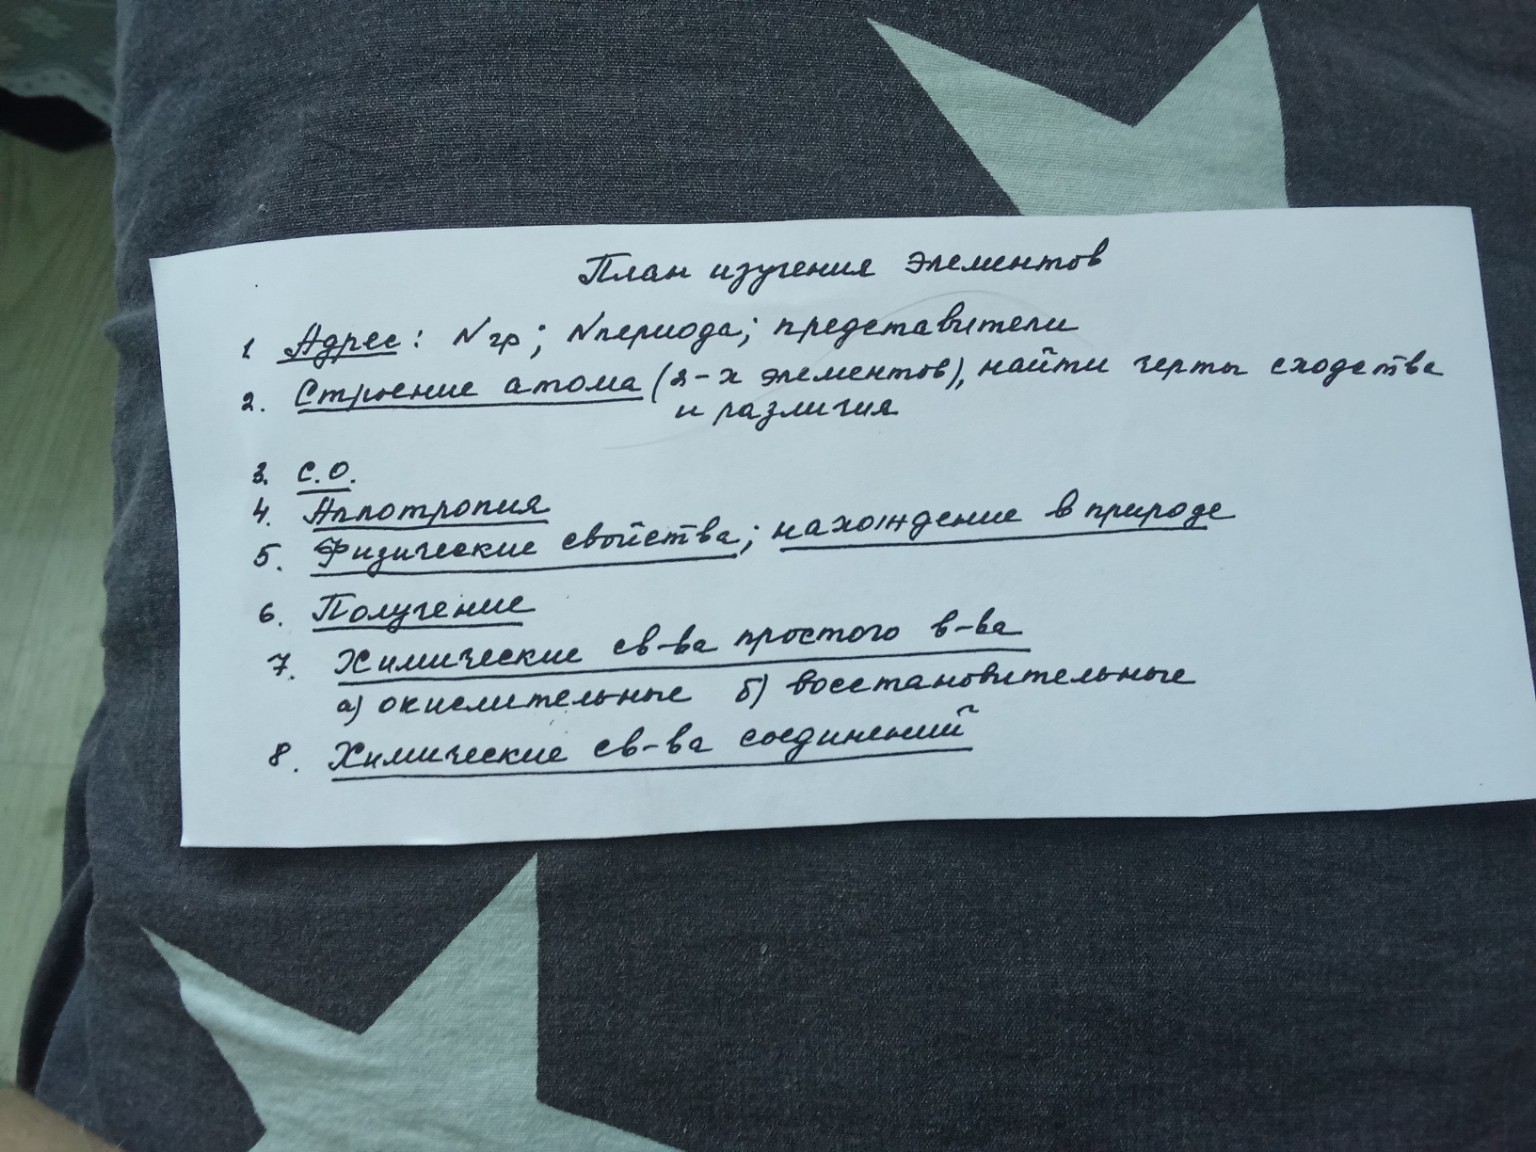 План изучения элементов
1. Адрес: N гр; N периода; представители
2. Строение атома (2-х элементов), найти черты сходства
и различия
3. С.О.
4. Аллотропия
5. Физические свойства; нахождение в природе
6. Получение
7. Химические св-ва простого в-ва
а) окислительные б) восстановительные
8. Химические св-ва соединений